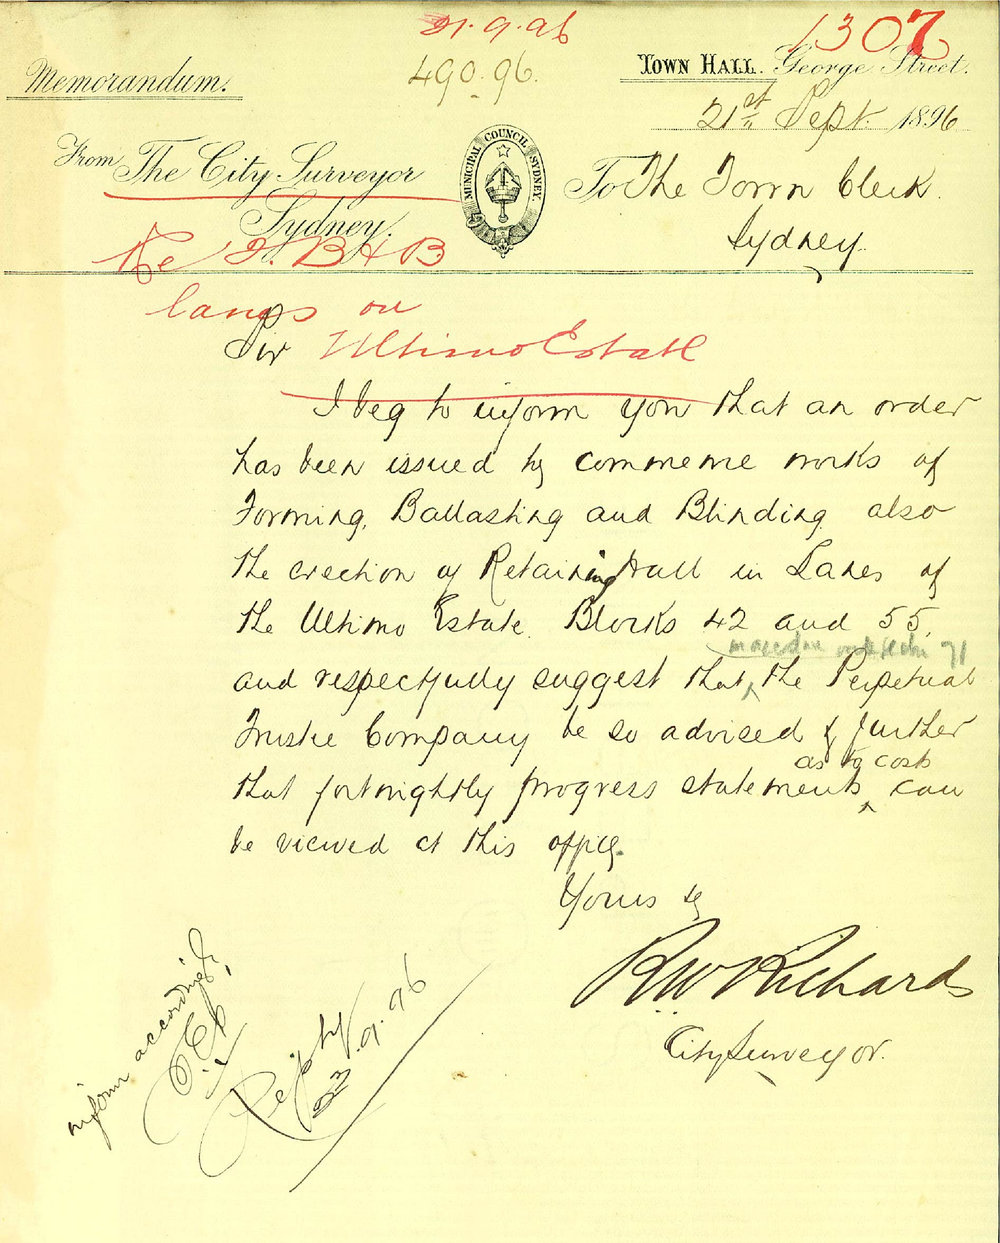 21.9.96
1307
490.96.
Memorandum.
TOWN HALL. George Street.
21st Sept. 1896
From The City Surveyor
MUNICIPAL COUNCIL SYDNEY.
To The Town Clerk.
Sydney.
Sydney
Re F. B & B
Lanes on
Sir Ultimo Estate
I beg to inform you that an order
has been issued to commence works of
Forming, Ballasting and Blinding also
the erection of Retaining Wall in Lanes of
the Ultimo Estate. Blocks 42 and 55,
and respectfully suggest that the Perpetual
Trustee Company be so advised & further
as to cost
that fortnightly progress statements can
be viewed at this office.
Yours &c
RW Richards
City Surveyor.
inform accordingly.
Reply
23.9.96